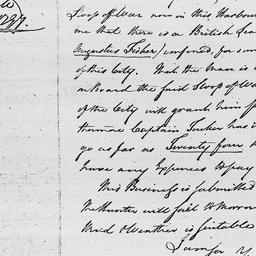 1797.
Sloop of War now in this Harbour
me that there is a British Sea
Augustus Fisher, confined, for
of this City. That the Man is
on Board the said Sloop of War
of the City will grant him
Captain Tucker has
go as far as Twenty four
have any Expences to pay
This Business is submitted
The Hunter will sail to Morrow
Wind & Weather is suitable
I am for Y